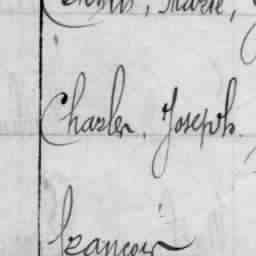 Marie,
Charles, Joseph.
François